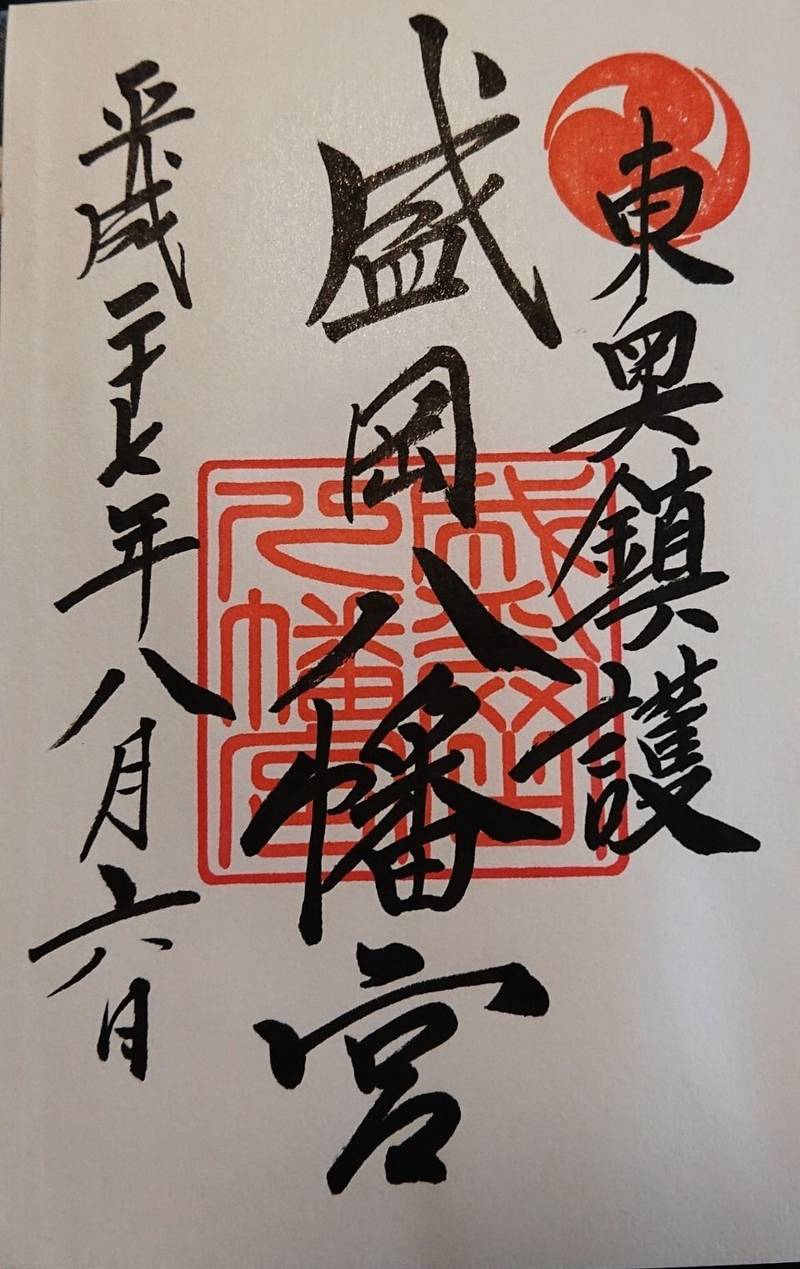 東奥鎮護
盛岡八幡宮
盛岡八幡宮
平成二十七年八月六日